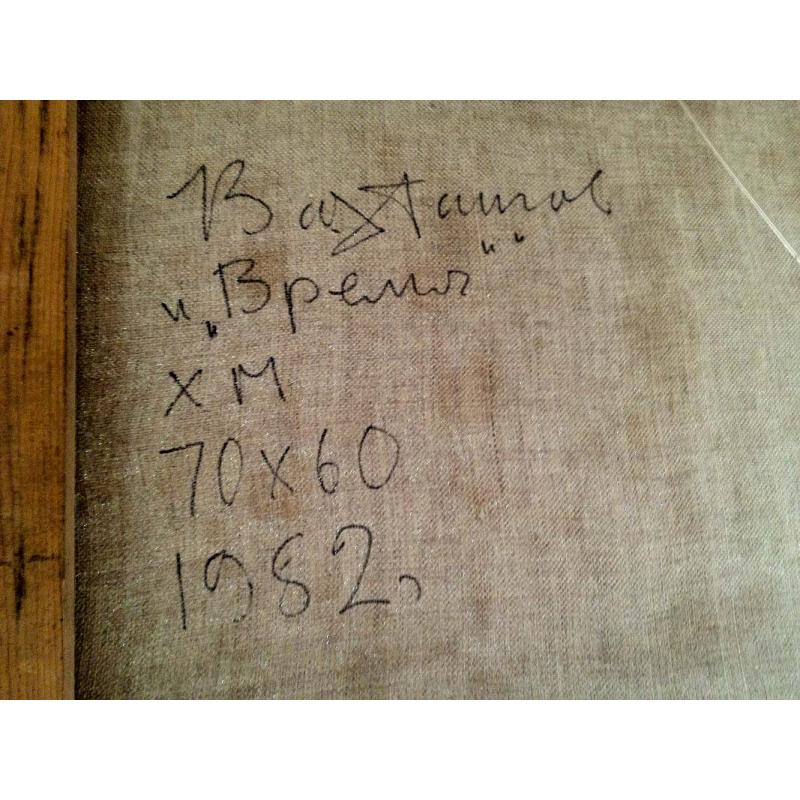 Вахтангов
„„Время""
хм
70х60
1982г